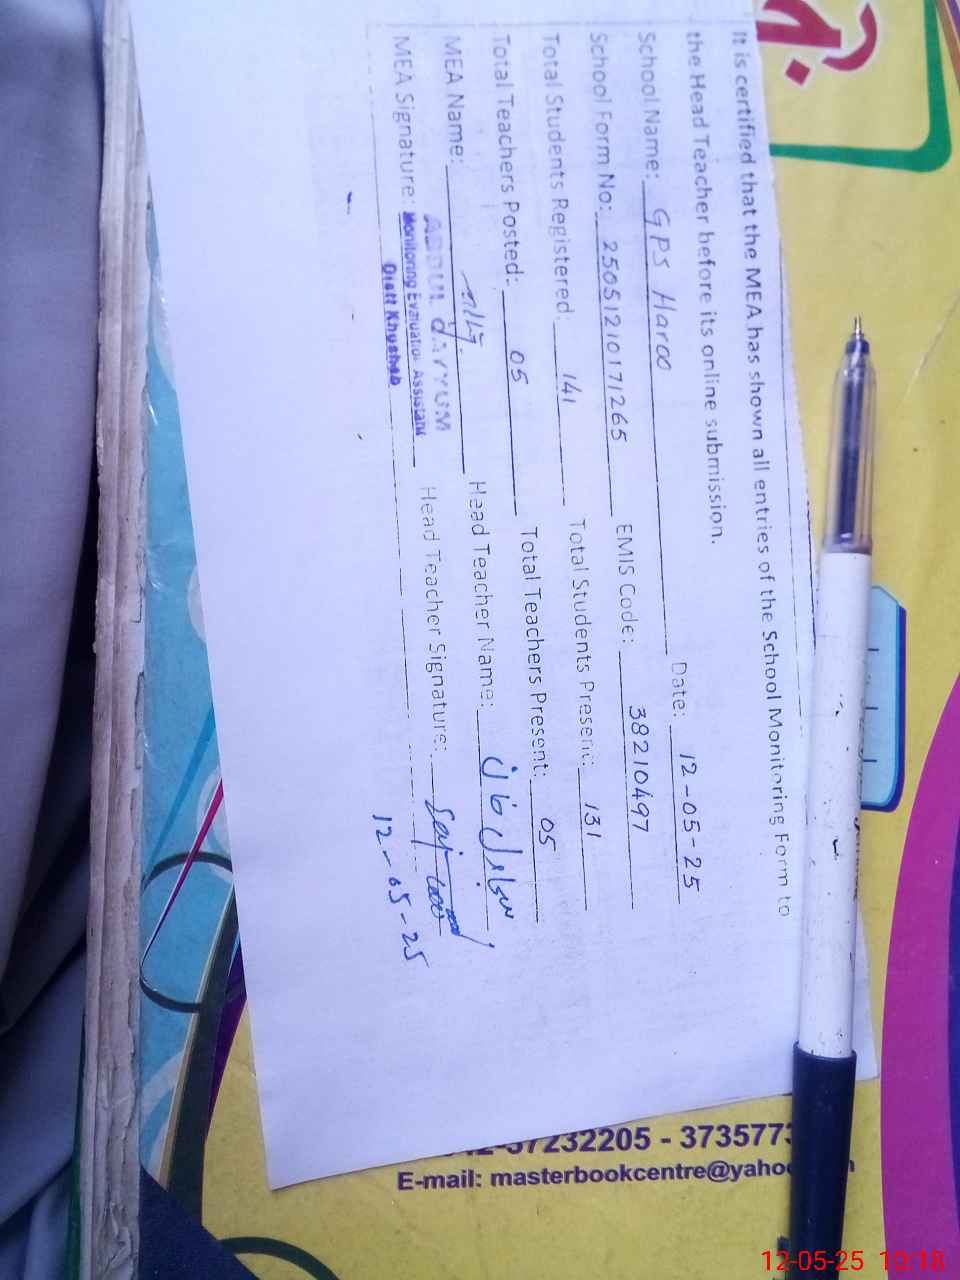 It is certified that the MEA has shown all entries of the School Monitoring Form to
the Head Teacher before its online submission.
School Name: GPS Haroo Date: 12-05-25
School Form No: 25051210171265 EMIS Code: 38210497
Total Students Registered: 141 Total Students Present: 131
Total Teachers Posted: 05 Total Teachers Present: 05
MEA Name: Head Teacher Name:
MEA Signature: Head Teacher Signature:
ABDUL QAYYUM
Monitoring Evaluation Assistant
Distt Khushab
12-05-25
37232205 - 3735773
E-mail: masterbookcentre@yahoo
12-05-25 10:18